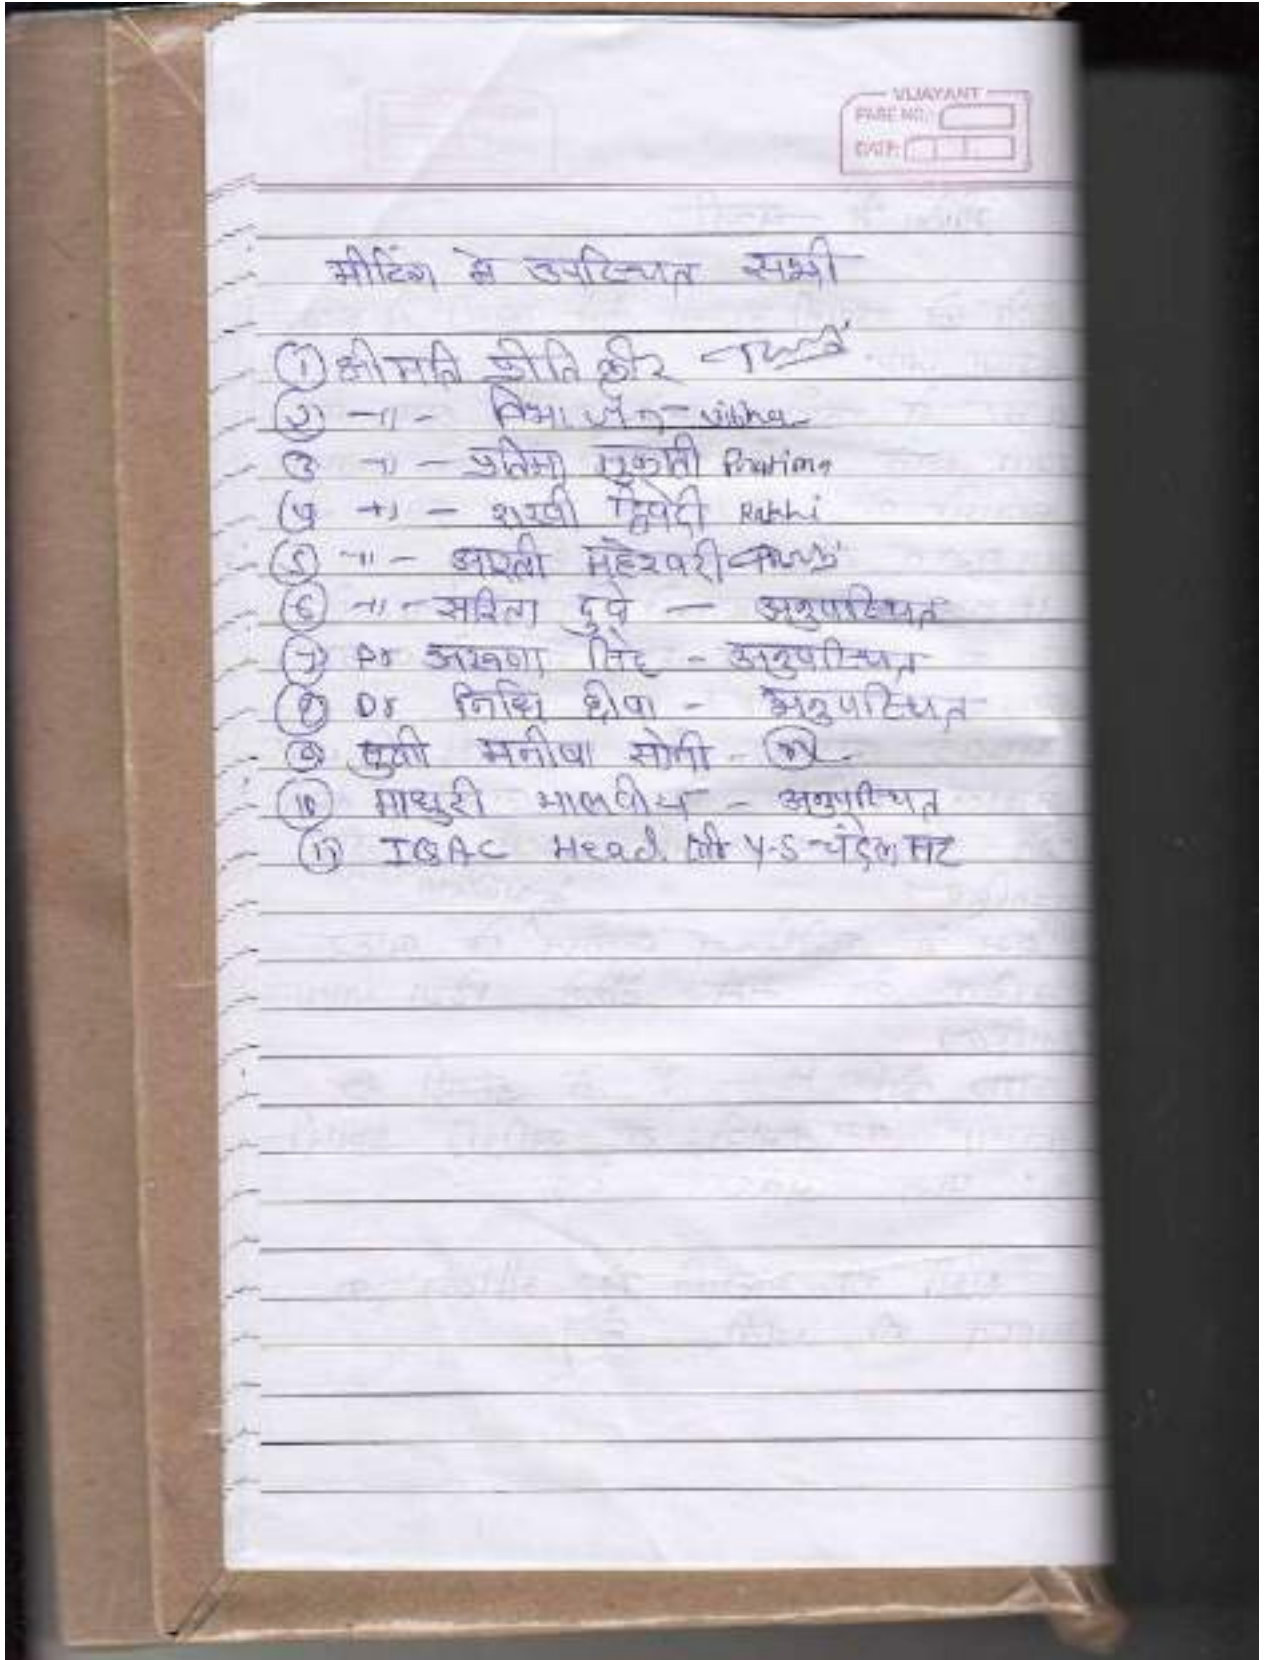 VIJAYANT
PAGE NO.:
DATE:
मीटिंग मे उपस्थित सभी
① श्रीमति प्रीति कीर
② -"- विभा जैन - vibha
③ -"- प्रतिमा मुकाती Pratima
④ -"- राखी द्विवेदी Rakhi
⑤ -"- आरती महेश्वरी
⑥ -"- सरिता दुबे - अनुपस्थित
⑦ Dr अरूणा सिंह - अनुपस्थित
⑧ Dr निधि - अनुपस्थित
⑨ सुश्री मनीषा सोनी -
⑩ माधुरी मालवीय - अनुपस्थित
⑪ IQAC Head Y-S-चंदेल सर